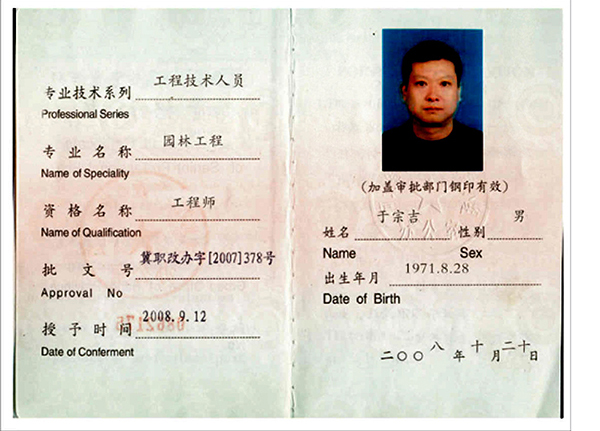 专业技术系列 工程技术人员
Professional Series
专业名称 园林工程
Name of Speciality
资格名称 工程师
Name of Qualification
批文号 冀职改办字[2007]378号
Approval No
授予时间 2008.9.12
Date of Conferment
(加盖审批部门钢印有效)
姓名 于宗吉 性别 男
Name Sex
出生年月 1971.8.28
Date of Birth
二〇〇八年十月二十日